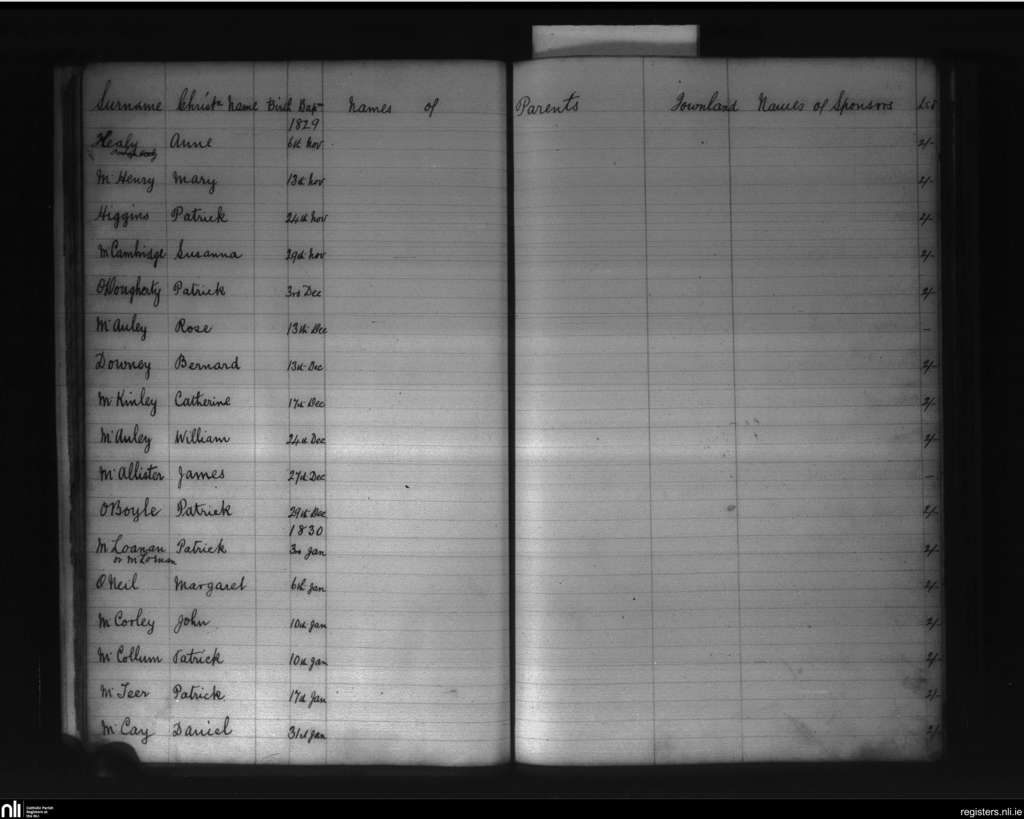 Surname Christn Name Birth Bapm Names of Parents Townland Names of Sponsors
1829
Healy Anne 6th Nov 2/-
McHenry Mary 13th Nov 2/-
Higgins Patrick 24th Nov 2/-
McCambridge Susanna 29th Nov 2/-
O'Dougherty Patrick 3rd Dec 2/-
McAuley Rose 13th Dec –
Downey Bernard 13th Dec 2/-
McKinley Catherine 17th Dec 2/-
McAuley William 24th Dec 2/-
McAllister James 27th Dec –
O'Boyle Patrick 29th Dec 2/-
1830
McLoanan Patrick 3rd Jan 2/-
or McLonan
O'Neil Margaret 6th Jan 2/-
McCorley John 10th Jan 2/-
McCollum Patrick 10th Jan 2/-
McTeer Patrick 17th Jan 2/-
McCay Daniel 31st Jan 2/-
nli Catholic Parish
Registers at
the NLI
registers.nli.ie